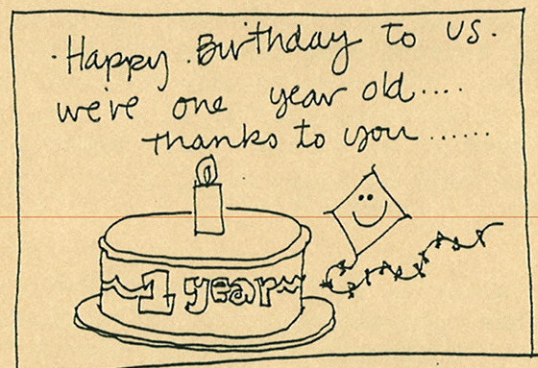 ·Happy Birthday to us.
we're one year old....
thanks to you ......
~1 year~